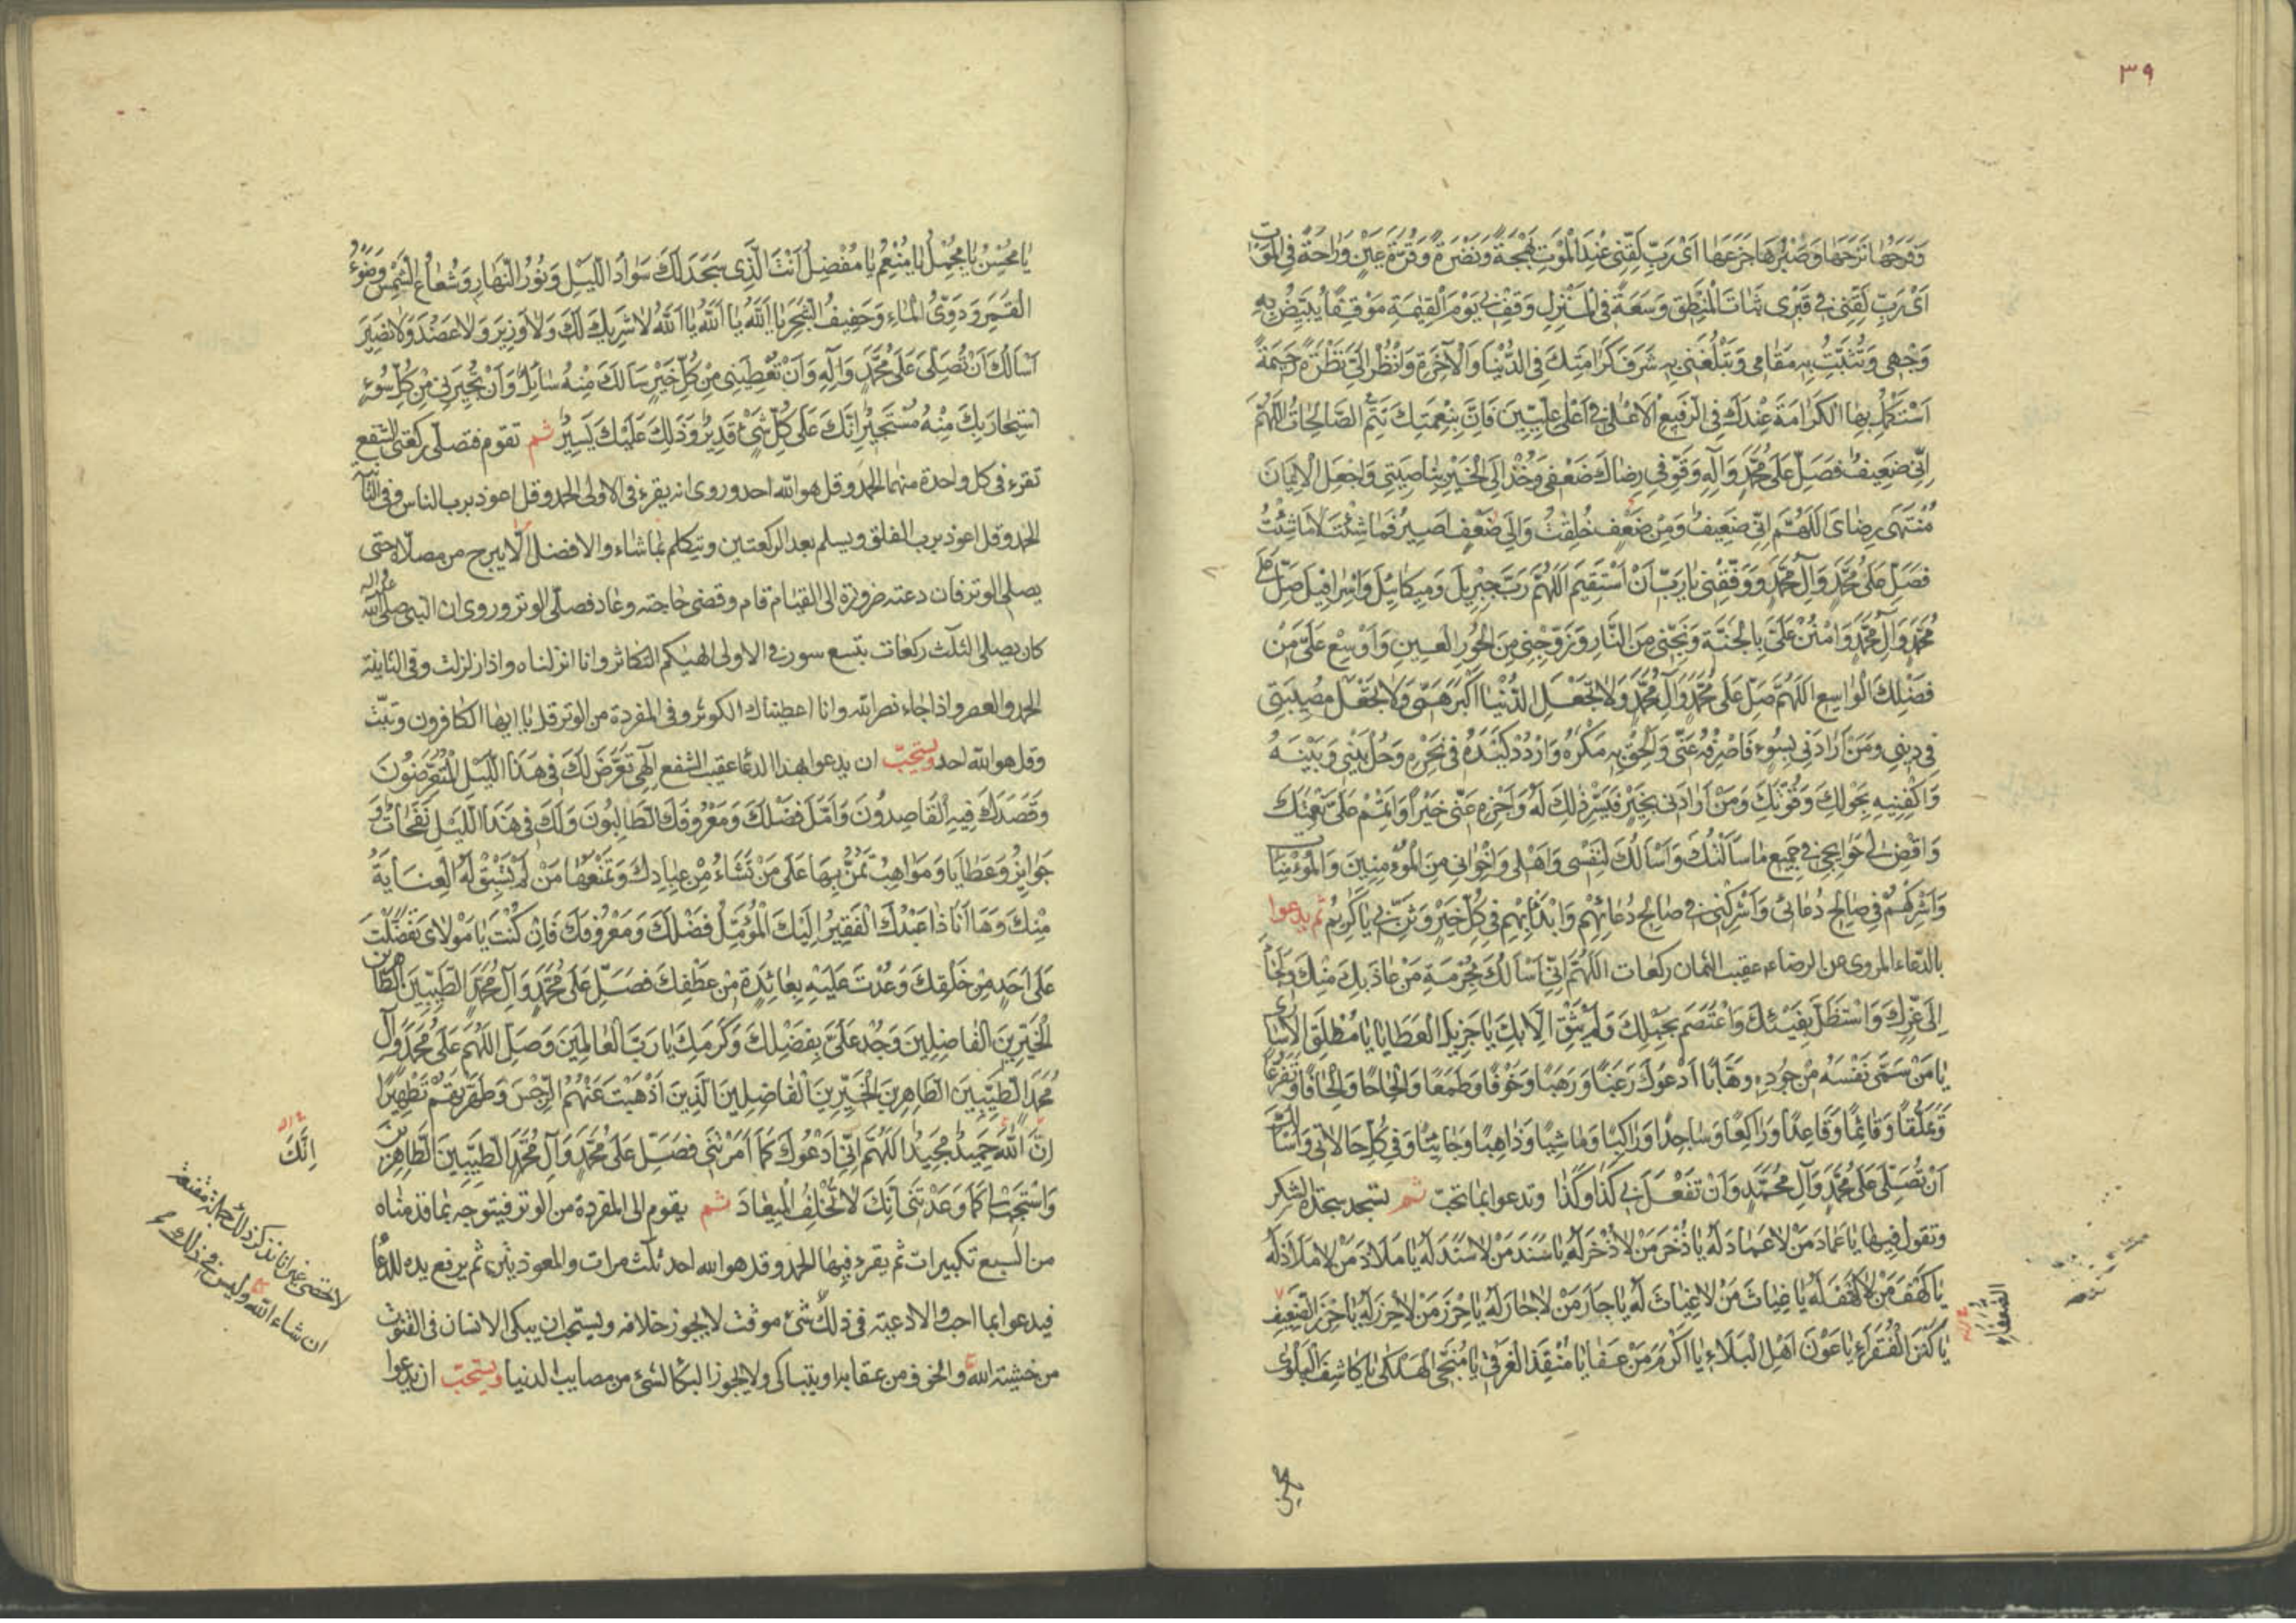 ٣٩
وَفَرَحَهَا تَرَحَهَا وَصَبْرُهَا جَزَعَهَا اَىْ رَبِّ لَقِّنِى عِنْدَ الْمَوْتِ بَهْجَةً وَنَضْرَةً وَقُرَّةَ عَيْنٍ وَرَاحَةً فِى الْمَوْتِ
اَىْ رَبِّ لَقِّنِى فِى قَبْرِى ثَبَاتَ الْمَنْطِقِ وَسَعَةً فِى الْمَنْزِلِ وَقِفْ بِى يَوْمَ الْقِيٰمَةِ مَوْقِفًا يُبَيِّضُ بِهِ
وَجْهِى وَتُثَبِّتُ بِهِ مَقَامِى وَتُبَلِّغُنِى بِهِ شَرَفَ كَرَامَتِكَ فِى الدُّنْيَا وَالْآخِرَةِ وَانْظُرْ اِلَىَّ نَظْرَةً رَحِيمَةً
اَسْتَكْمِلُ بِهَا الْكَرَامَةَ عِنْدَكَ فِى الرَّفِيعِ الْاَعْلٰى فِى اَعْلٰى عِلِّيِّينَ فَاِنَّ بِنِعْمَتِكَ تَتِمُّ الصَّالِحَاتُ اَللّٰهُمَّ
اِنِّى ضَعِيفٌ فَصَلِّ عَلٰى مُحَمَّدٍ وَآلِهِ وَقَوِّ فِى رِضَاكَ ضَعْفِى وَخُذْ اِلَى الْخَيْرِ بِنَاصِيَتِى وَاجْعَلِ الْاِيمَانَ
مُنْتَهٰى رِضَاىَ اَللّٰهُمَّ اِنِّى ضَعِيفٌ وَمِنْ ضَعْفٍ خُلِقْتُ وَاِلٰى ضَعْفٍ اَصِيرُ فَمَا شِئْتَ لَا مَا شِئْتُ
فَصَلِّ عَلٰى مُحَمَّدٍ وَآلِ مُحَمَّدٍ وَوَفِّقْنِى يَا رَبِّ اَنْ اَسْتَقِيمَ اَللّٰهُمَّ رَبَّ جَبْرَئِيلَ وَمِيكَائِيلَ وَاِسْرَافِيلَ صَلِّ عَلٰى
مُحَمَّدٍ وَآلِ مُحَمَّدٍ وَامْنُنْ عَلَىَّ بِالْجَنَّةِ وَنَجِّنِى مِنَ النَّارِ وَزَوِّجْنِى مِنَ الْحُورِ الْعِينِ وَاَوْسِعْ عَلَىَّ مِنْ
فَضْلِكَ الْوَاسِعِ اَللّٰهُمَّ صَلِّ عَلٰى مُحَمَّدٍ وَآلِ مُحَمَّدٍ وَلَا تَجْعَلِ الدُّنْيَا اَكْبَرَ هَمِّى وَلَا تَجْعَلْ مُصِيبَتِى
فِى دِينِى وَمَنْ اَرَادَنِى بِسُوءٍ فَاصْرِفْهُ عَنِّى وَاَلْحِقْ بِهِ مَكْرَهُ وَارْدُدْ كَيْدَهُ فِى نَحْرِهِ وَحُلْ بَيْنِى وَبَيْنَهُ
وَاكْفِنِيهِ بِحَوْلِكَ وَقُوَّتِكَ وَمَنْ اَرَادَنِى بِخَيْرٍ فَيَسِّرْ ذٰلِكَ لَهُ وَاجْزِهِ عَنِّى خَيْرًا وَاَتْمِمْ عَلَىَّ نِعْمَتَكَ
وَاقْضِ لِى حَوَائِجِى فِى جَمِيعِ مَا سَأَلْتُكَ وَاَسْأَلُكَ لِنَفْسِى وَاَهْلِى وَاِخْوَانِى مِنَ الْمُؤْمِنِينَ وَالْمُؤْمِنَاتِ
وَاَشْرِكْهُمْ فِى صَالِحِ دُعَائِى وَاَشْرِكْنِى فِى صَالِحِ دُعَائِهِمْ وَابْدَأْ بِهِمْ فِى كُلِّ خَيْرٍ وَثَنِّ بِى يَا كَرِيمُ ثم يدعوا
بالدّعاء المروى عن الرضاء عقيب الثمان ركعات اَللّٰهُمَّ اِنِّى اَسْأَلُكَ بِحُرْمَةِ مَنْ عَاذَ بِكَ مِنْكَ وَلَجَأَ
اِلٰى عِزِّكَ وَاسْتَظَلَّ بِفَيْئِكَ وَاعْتَصَمَ بِحَبْلِكَ وَلَمْ يَثِقْ اِلَّا بِكَ يَا جَزِيلَ الْعَطَايَا يَا مُطْلِقَ الْاُسَارٰى
يَا مَنْ سَمّٰى نَفْسَهُ مِنْ جُودِهِ وَهَّابًا اَدْعُوكَ رَغَبًا وَرَهَبًا وَخَوْفًا وَطَمَعًا وَاِلْحَاحًا وَاِلْحَافًا وَتَضَرُّعًا
وَتَمَلُّقًا وَقَائِمًا وَقَاعِدًا وَرَاكِعًا وَسَاجِدًا وَرَاكِبًا وَمَاشِيًا وَذَاهِبًا وَجَائِيًا وَفِى كُلِّ حَالَاتِى وَاَسْأَلُكَ
اَنْ تُصَلِّىَ عَلٰى مُحَمَّدٍ وَآلِ مُحَمَّدٍ وَاَنْ تَفْعَلَ بِى كَذَا وَكَذَا وتدعوا بما تحبّ ثم تسجد سجدة الشكر
وتقول فيها يَا عِمَادَ مَنْ لَا عِمَادَ لَهُ يَا ذُخْرَ مَنْ لَا ذُخْرَ لَهُ يَا سَنَدَ مَنْ لَا سَنَدَ لَهُ يَا مَلَاذَ مَنْ لَا مَلَاذَ لَهُ
يَا كَهْفَ مَنْ لَا كَهْفَ لَهُ يَا غِيَاثَ مَنْ لَا غِيَاثَ لَهُ يَا جَارَ مَنْ لَا جَارَ لَهُ يَا حِرْزَ مَنْ لَا حِرْزَ لَهُ يَا حِرْزَ الضَّعِيفِ
يَا كَنْزَ الْفُقَرَاءِ يَا عَوْنَ اَهْلِ الْبَلَاءِ يَا اَكْرَمَ مَنْ عَفَا يَا مُنْقِذَ الْغَرْقٰى يَا مُنْجِىَ الْهَلْكٰى يَا كَاشِفَ الْبَلْوٰى
الضُّعَفَاءِ
يا محسن
يَا مُحْسِنُ يَا مُجْمِلُ يَا مُنْعِمُ يَا مُفْضِلُ اَنْتَ الَّذِى سَجَدَ لَكَ سَوَادُ اللَّيْلِ وَنُورُ النَّهَارِ وَشُعَاعُ الشَّمْسِ وَضَوْءُ
الْقَمَرِ وَدَوِىُّ الْمَاءِ وَحَفِيفُ الشَّجَرِ يَا اَللّٰهُ يَا اَللّٰهُ يَا اَللّٰهُ لَا شَرِيكَ لَكَ وَلَا وَزِيرَ وَلَا عَضُدَ وَلَا نَصِيرَ
اَسْأَلُكَ اَنْ تُصَلِّىَ عَلٰى مُحَمَّدٍ وَآلِهِ وَاَنْ تُعْطِيَنِى مِنْ كُلِّ خَيْرٍ سَأَلَكَ مِنْهُ سَائِلٌ وَاَنْ تُجِيرَنِى مِنْ كُلِّ سُوءٍ
اسْتَجَارَ بِكَ مِنْهُ مُسْتَجِيرٌ اِنَّكَ عَلٰى كُلِّ شَىْءٍ قَدِيرٌ وَذٰلِكَ عَلَيْكَ يَسِيرٌ ثم تقوم فتصلّى ركعتى الشفع
تقرء فى كل واحدة منهما الحمد وقل هو الله احد وروى انه يقرء فى الاولى الحمد وقل اعوذ برب الناس وفى الثانية
الحمد وقل اعوذ برب الفلق ويسلم بعد الركعتين ويتكلم بما شاء والافضل الّا يبرح من مصلّاه حتى
يصلى الوتر فان دعته ضرورة الى القيام قام وقضى حاجته وعاد فصلّى الوتر وروى ان النبى صلى الله عليه وآله
كان يصلى الثلث ركعات بتسع سور فى الاولى الهيكم التكاثر وانا انزلناه واذا زلزلت وفى الثانية
الحمد والعصر واذا جاء نصر الله وانا اعطيناك الكوثر وفى المفردة من الوتر قل يا ايها الكافرون وتبّت
وقل هو الله احد ويستحبّ ان يدعوا بهذا الدعاء عقيب الشفع اِلٰهِى تَعَرَّضَ لَكَ فِى هٰذَا اللَّيْلِ الْمُتَعَرِّضُونَ
وَقَصَدَكَ فِيهِ الْقَاصِدُونَ وَاَمَّلَ فَضْلَكَ وَمَعْرُوفَكَ الطَّالِبُونَ وَلَكَ فِى هٰذَا اللَّيْلِ نَفَحَاتٌ وَ
جَوَائِزُ وَعَطَايَا وَمَوَاهِبُ تَمُنُّ بِهَا عَلٰى مَنْ تَشَاءُ مِنْ عِبَادِكَ وَتَمْنَعُهَا مَنْ لَمْ تَسْبِقْ لَهُ الْعِنَايَةُ
مِنْكَ وَهَا اَنَا ذَا عَبْدُكَ الْفَقِيرُ اِلَيْكَ الْمُؤَمِّلُ فَضْلَكَ وَمَعْرُوفَكَ فَاِنْ كُنْتَ يَا مَوْلَاىَ تَفَضَّلْتَ
عَلٰى اَحَدٍ مِنْ خَلْقِكَ وَعُدْتَ عَلَيْهِ بِعَائِدَةٍ مِنْ عَطْفِكَ فَصَلِّ عَلٰى مُحَمَّدٍ وَآلِ مُحَمَّدٍ الطَّيِّبِينَ الطَّاهِرِينَ
الْخَيِّرِينَ الْفَاضِلِينَ وَجُدْ عَلَىَّ بِفَضْلِكَ وَكَرَمِكَ يَا رَبَّ الْعَالَمِينَ وَصَلِّ اللّٰهُمَّ عَلٰى مُحَمَّدٍ وَآلِ
مُحَمَّدٍ الطَّيِّبِينَ الطَّاهِرِينَ الْخَيِّرِينَ الْفَاضِلِينَ الَّذِينَ اَذْهَبْتَ عَنْهُمُ الرِّجْسَ وَطَهَّرْتَهُمْ تَطْهِيرًا
اِنَّ اللّٰهَ حَمِيدٌ مَجِيدٌ اَللّٰهُمَّ اِنِّى اَدْعُوكَ كَمَا اَمَرْتَنِى فَصَلِّ عَلٰى مُحَمَّدٍ وَآلِ مُحَمَّدٍ الطَّيِّبِينَ الطَّاهِرِينَ
وَاسْتَجِبْ لِى كَمَا وَعَدْتَنِى اِنَّكَ لَا تُخْلِفُ الْمِيعَادَ ثم يقوم الى المفردة من الوتر فيتوجه بما قدمناه
من السبع تكبيرات ثم يقرء فيها الحمد وقل هو الله احد ثلث مرات والمعوذتين ثم يرفع يده للدعاء
فيدعوا بما احب والادعية فى ذلك لا شىء موقت لا يجوز خلافه ويستحب ان يبكى الانسان فى القنوت
من خشية الله والخوف من عقابه او يتباكى ولا يجوز البكاء لشىء من مصايب الدنيا ويستحبّ ان يدعوا
اِنَّكَ
لا تحصى غير انا نذكر ذلك جملة مقنعة
ان شاء الله وليس فى ذلك